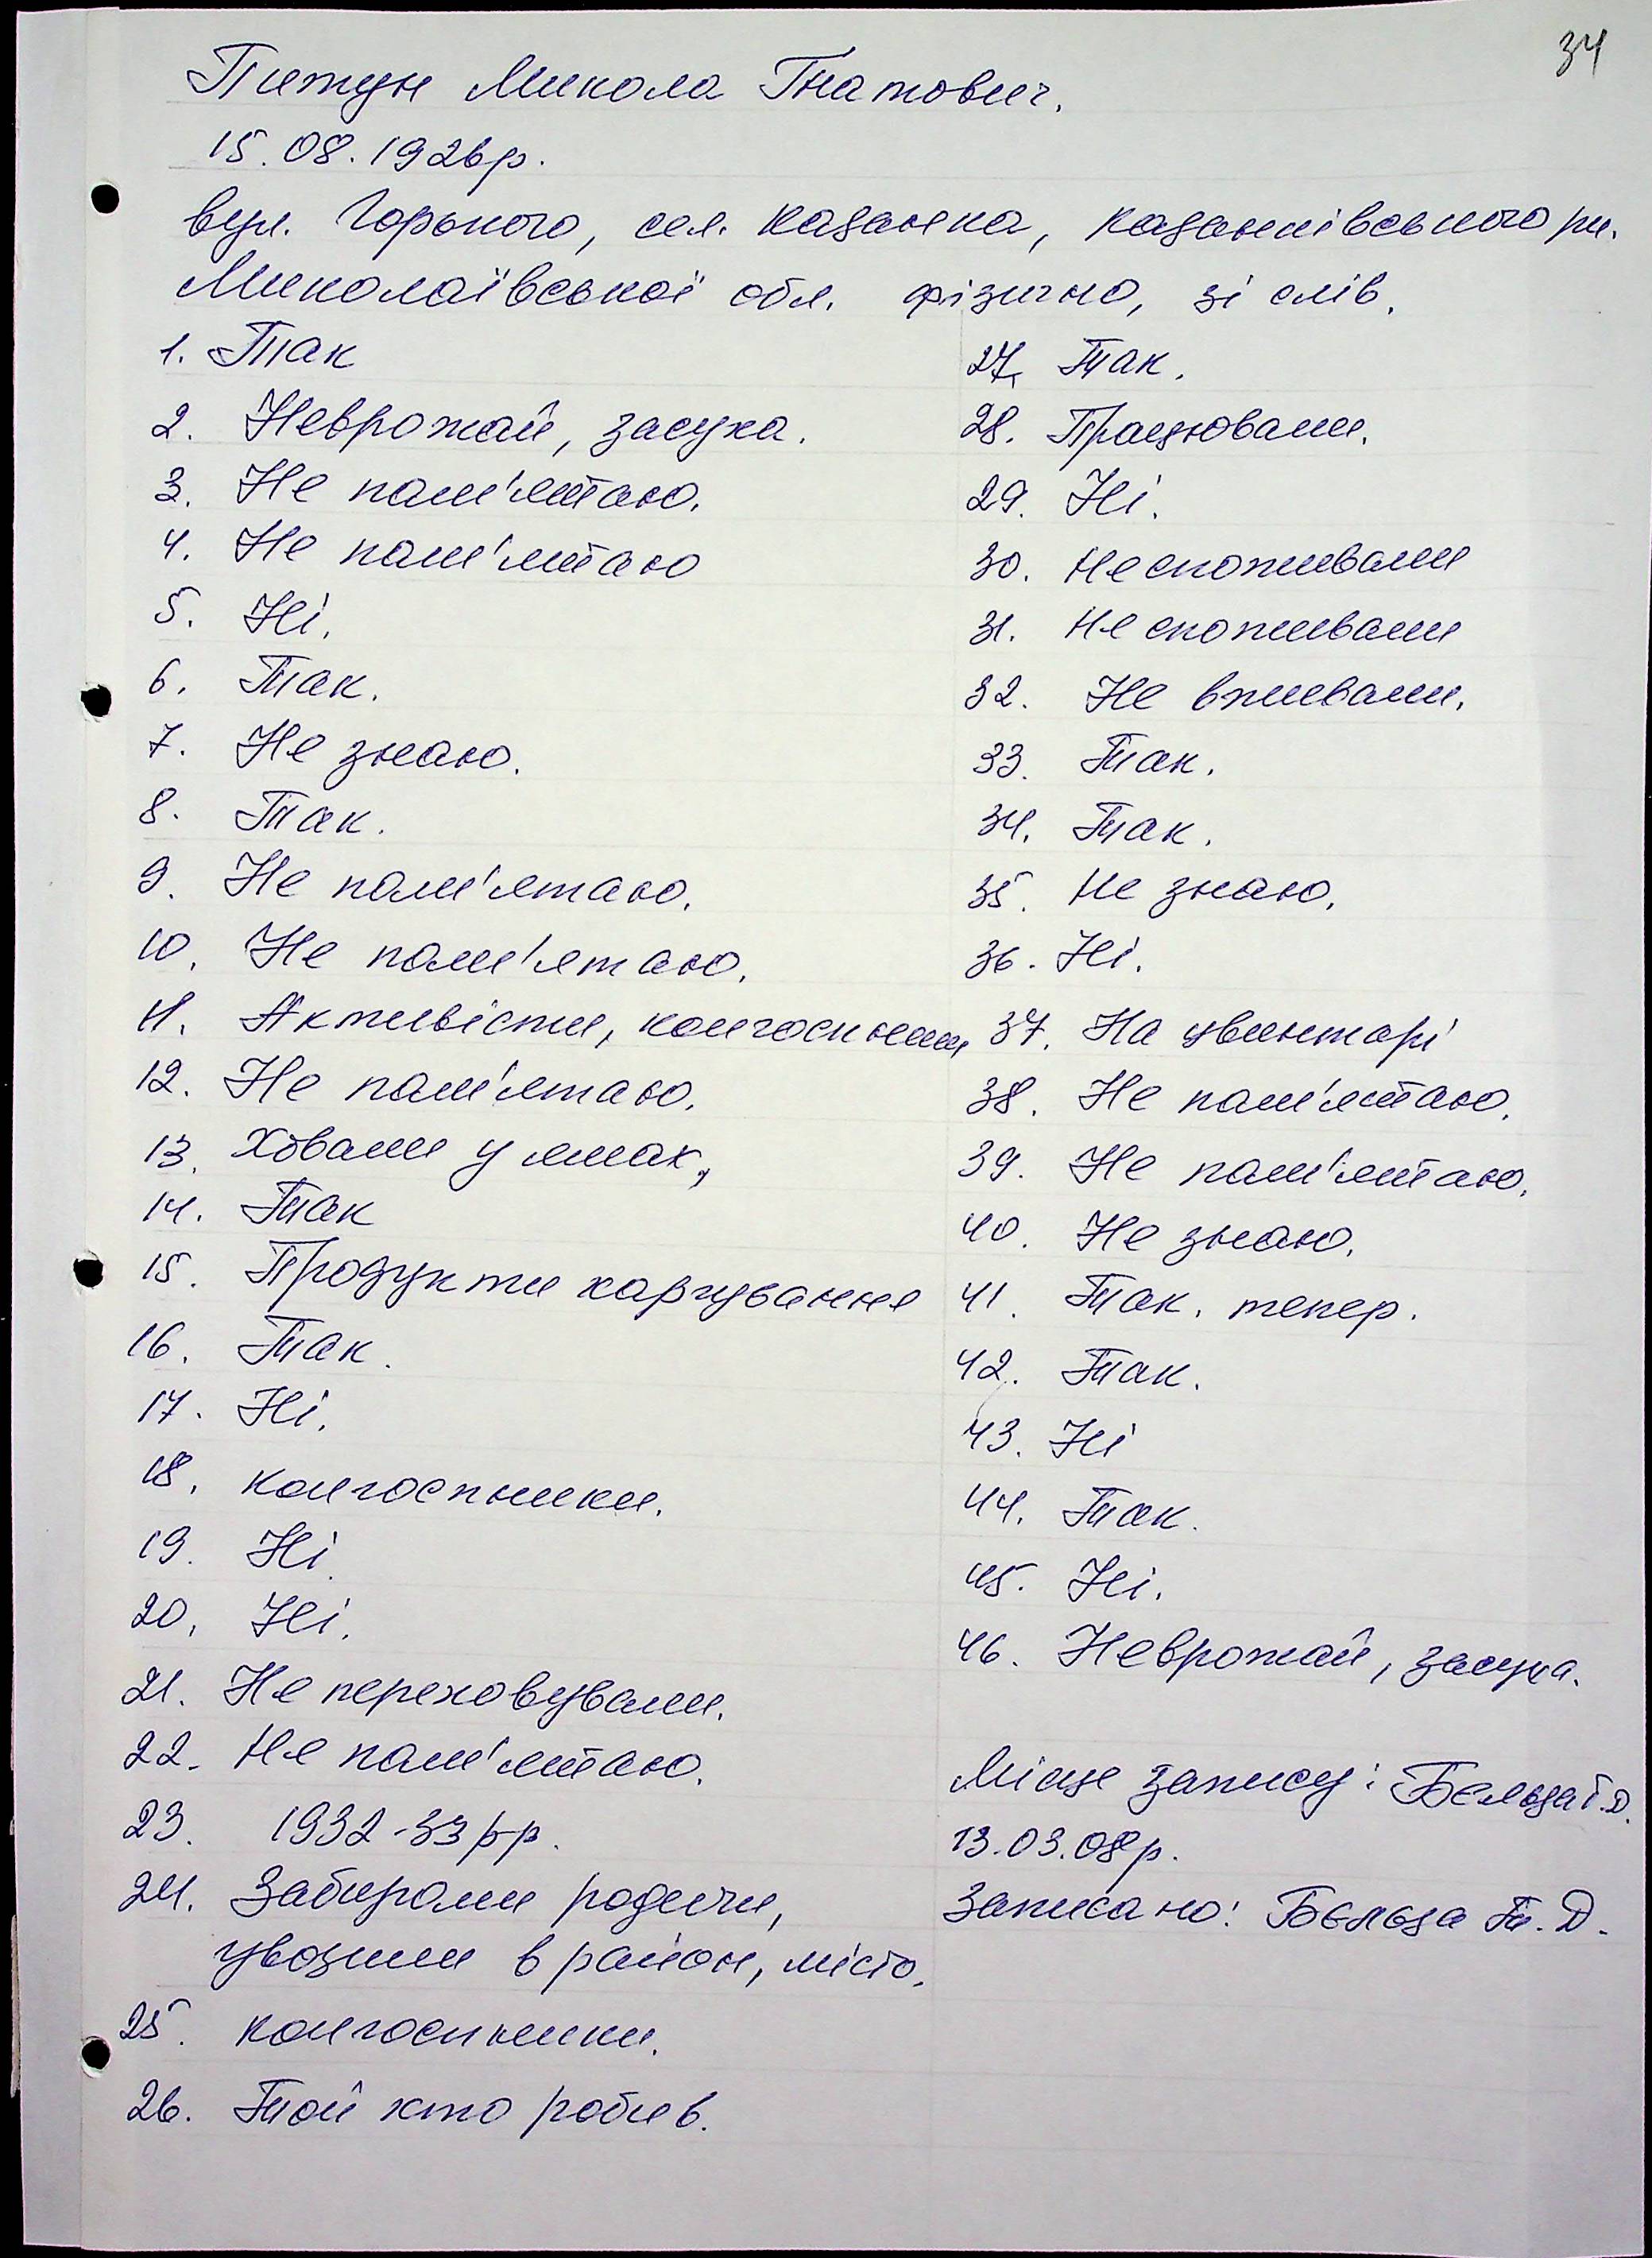 34
Пижун Микола Гнатович.
15.08.1926р.
вул. Горького, сел. Казанка, Казанківського рн.
Миколаївської обл. фізично, зі слів.
1. Так
2. Неврожай, засуха.
3. Не пам'ятаю.
4. Не пам'ятаю
5. Ні.
6. Так.
7. Не знаю.
8. Так.
9. Не пам'ятаю.
10. Не пам'ятаю.
11. Активісти, колгоспники
12. Не пам'ятаю.
13. Ховали у ямах,
14. Так
15. Продукти харчування
16. Так.
17. Ні.
18. колгоспники.
19. Ні.
20. Ні.
21. Не переховували.
22. Не пам'ятаю.
23. 1932-33рр.
24. Забирали родичи,
увозили в район, місто.
25. колгоспники.
26. Той хто робив.
27. Так.
28. Працювали.
29. Ні.
30. Не споживали
31. Не споживали
32. Не вживали.
33. Так.
34. Так.
35. Не знаю.
36. Ні.
37. На цвинтарі
38. Не пам'ятаю.
39. Не пам'ятаю.
40. Не знаю.
41. Так. тепер.
42. Так.
43. Ні
44. Так.
45. Ні.
46. Неврожай, засуха.
Місце запису: Бєльза Г.Д.
13.03.08р.
Записано: Бєльза Г.Д.